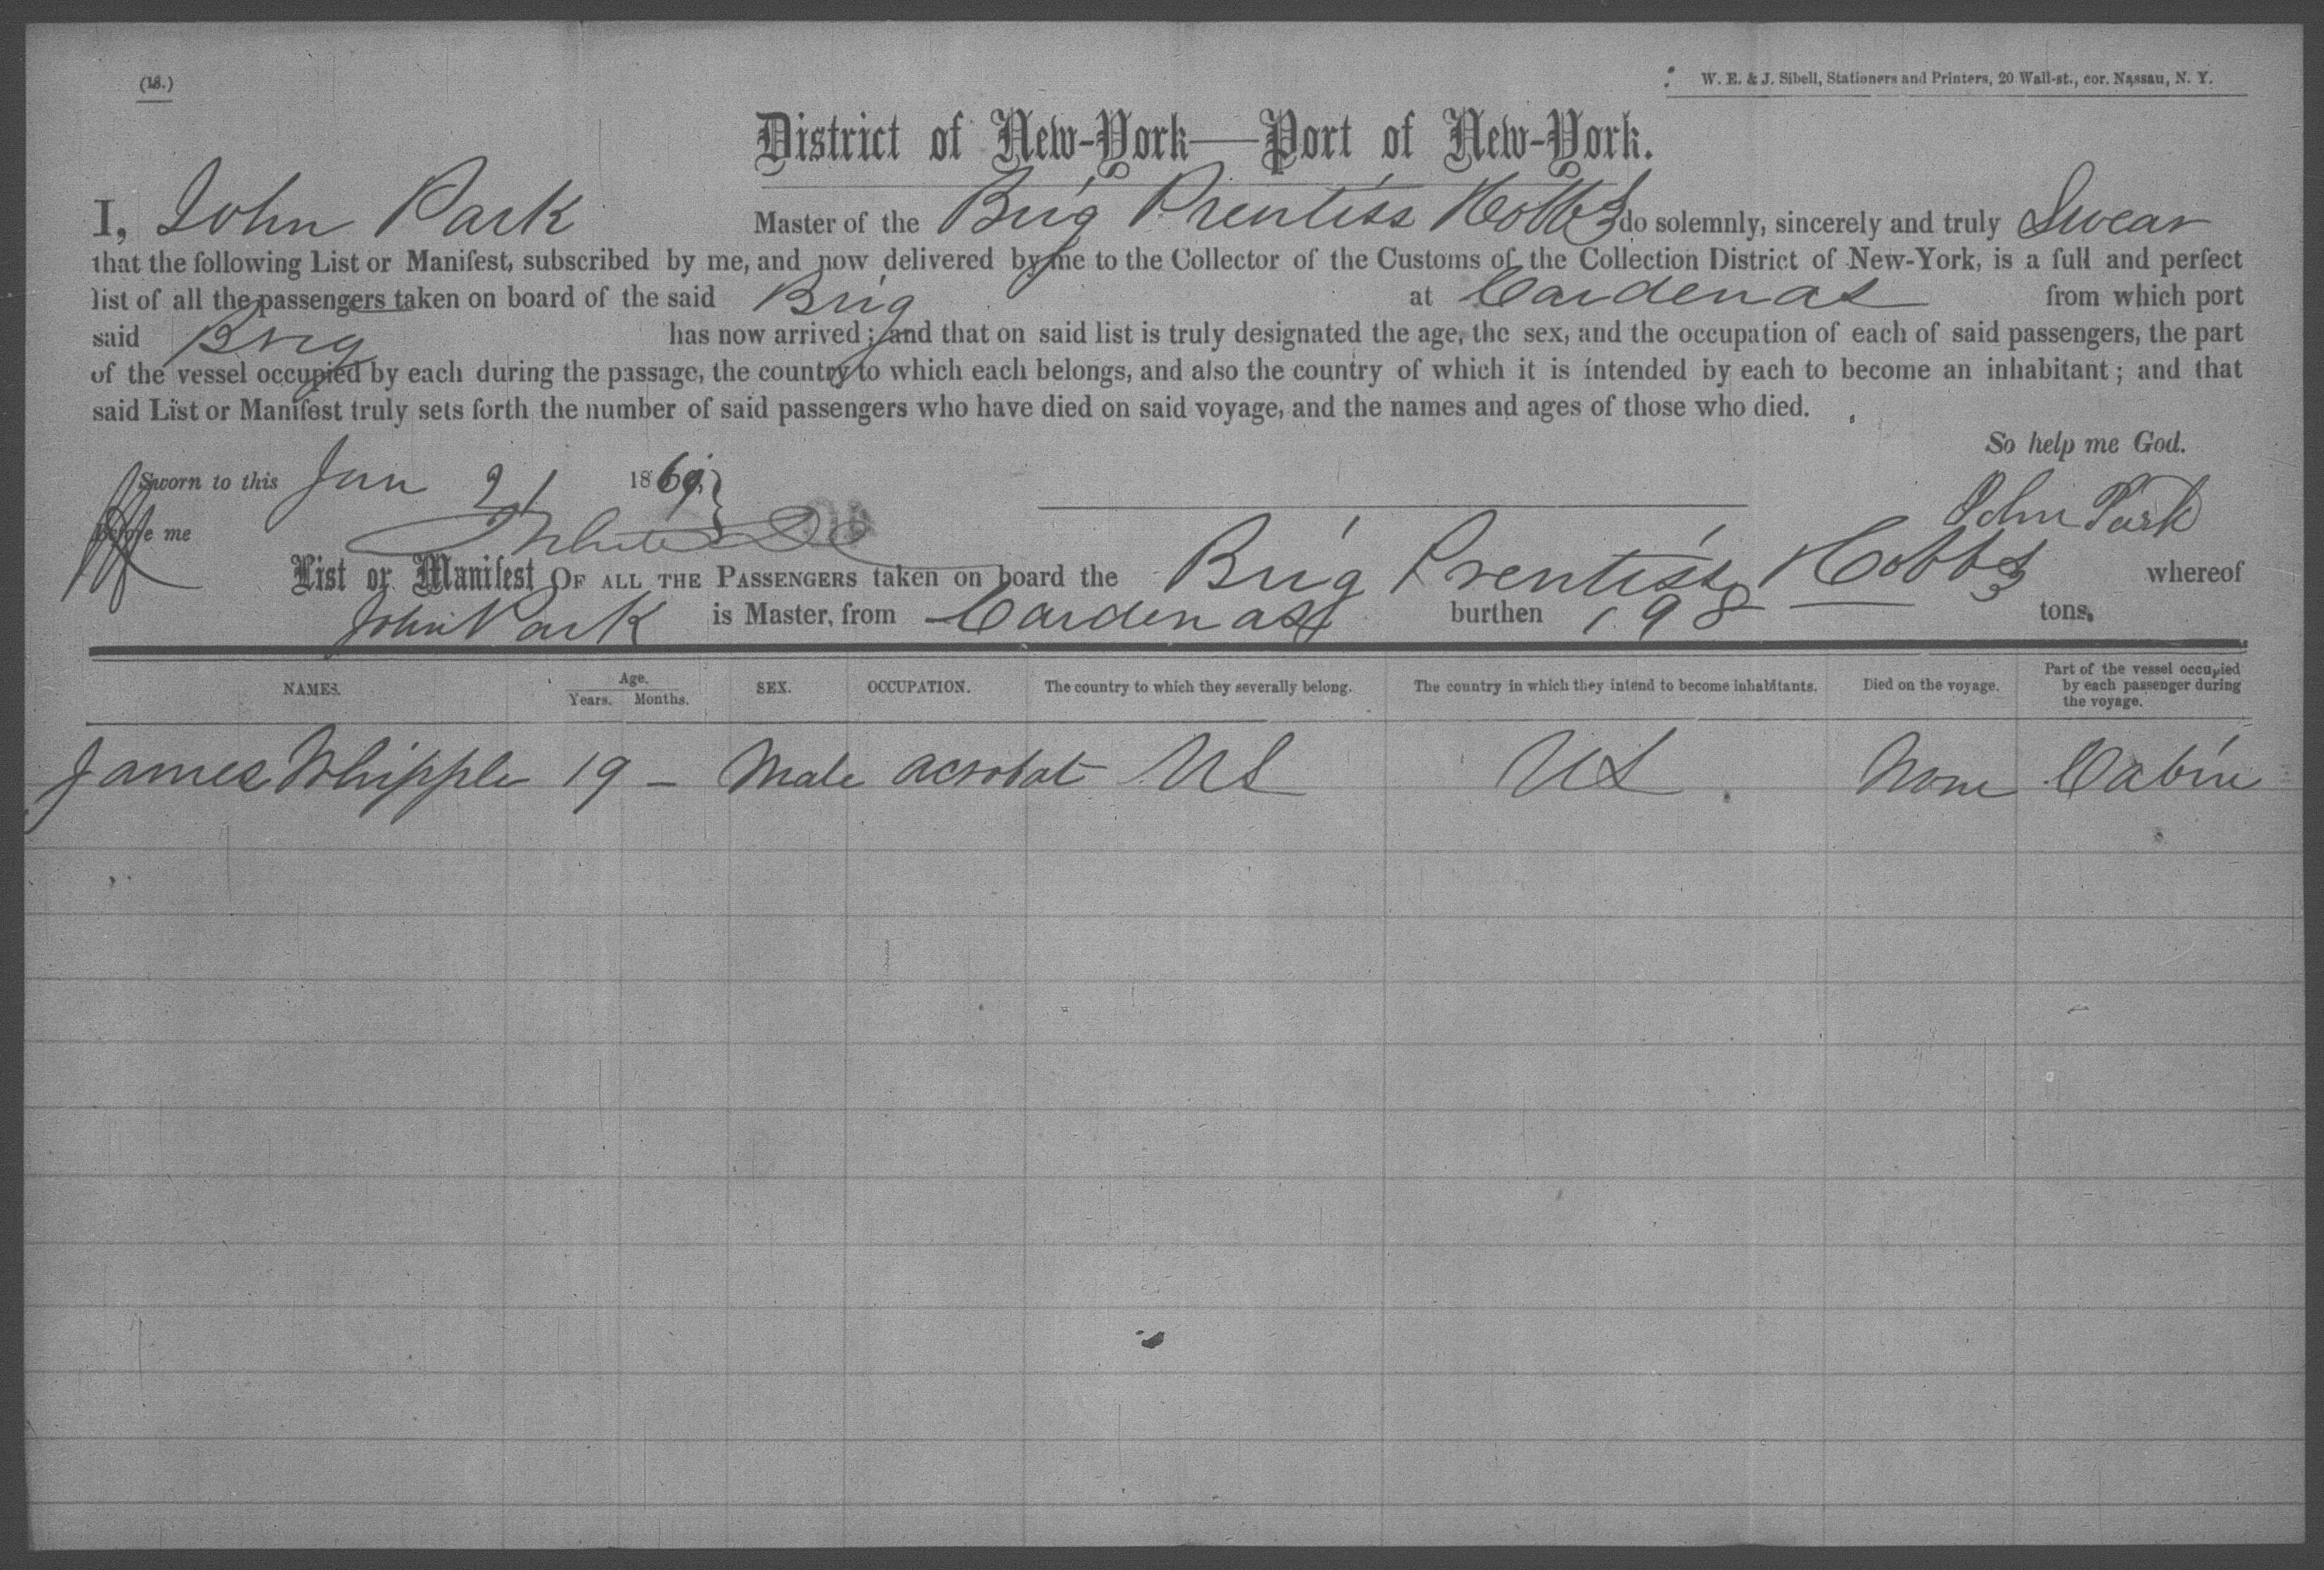 (18.)
W. E. & J. Sibell, Stationers and Printers, 20 Wall-st., cor. Nassau, N. Y.
District of New-York—Port of New-York.
I, John Park Master of the Brig Prentiss Hobbs do solemnly, sincerely and truly Swear
that the following List or Manifest, subscribed by me, and now delivered by me to the Collector of the Customs of the Collection District of New-York, is a full and perfect
list of all the passengers taken on board of the said Brig at Cardenas from which port
said Brig has now arrived; and that on said list is truly designated the age, the sex, and the occupation of each of said passengers, the part
of the vessel occupied by each during the passage, the country to which each belongs, and also the country of which it is intended by each to become an inhabitant; and that
said List or Manifest truly sets forth the number of said passengers who have died on said voyage, and the names and ages of those who died.
So help me God.
Sworn to this Jan 21 1869
John Park
Before me
List or Manifest OF ALL THE PASSENGERS taken on board the Brig Prentiss Hobbs whereof
John Park is Master, from Cardenas burthen 198 tons.
NAMES. Age. Years. Months. SEX. OCCUPATION. The country to which they severally belong. The country in which they intend to become inhabitants. Died on the voyage. Part of the vessel occupied by each passenger during the voyage.
James Whipple 19 — Male acrobat US US None Cabin